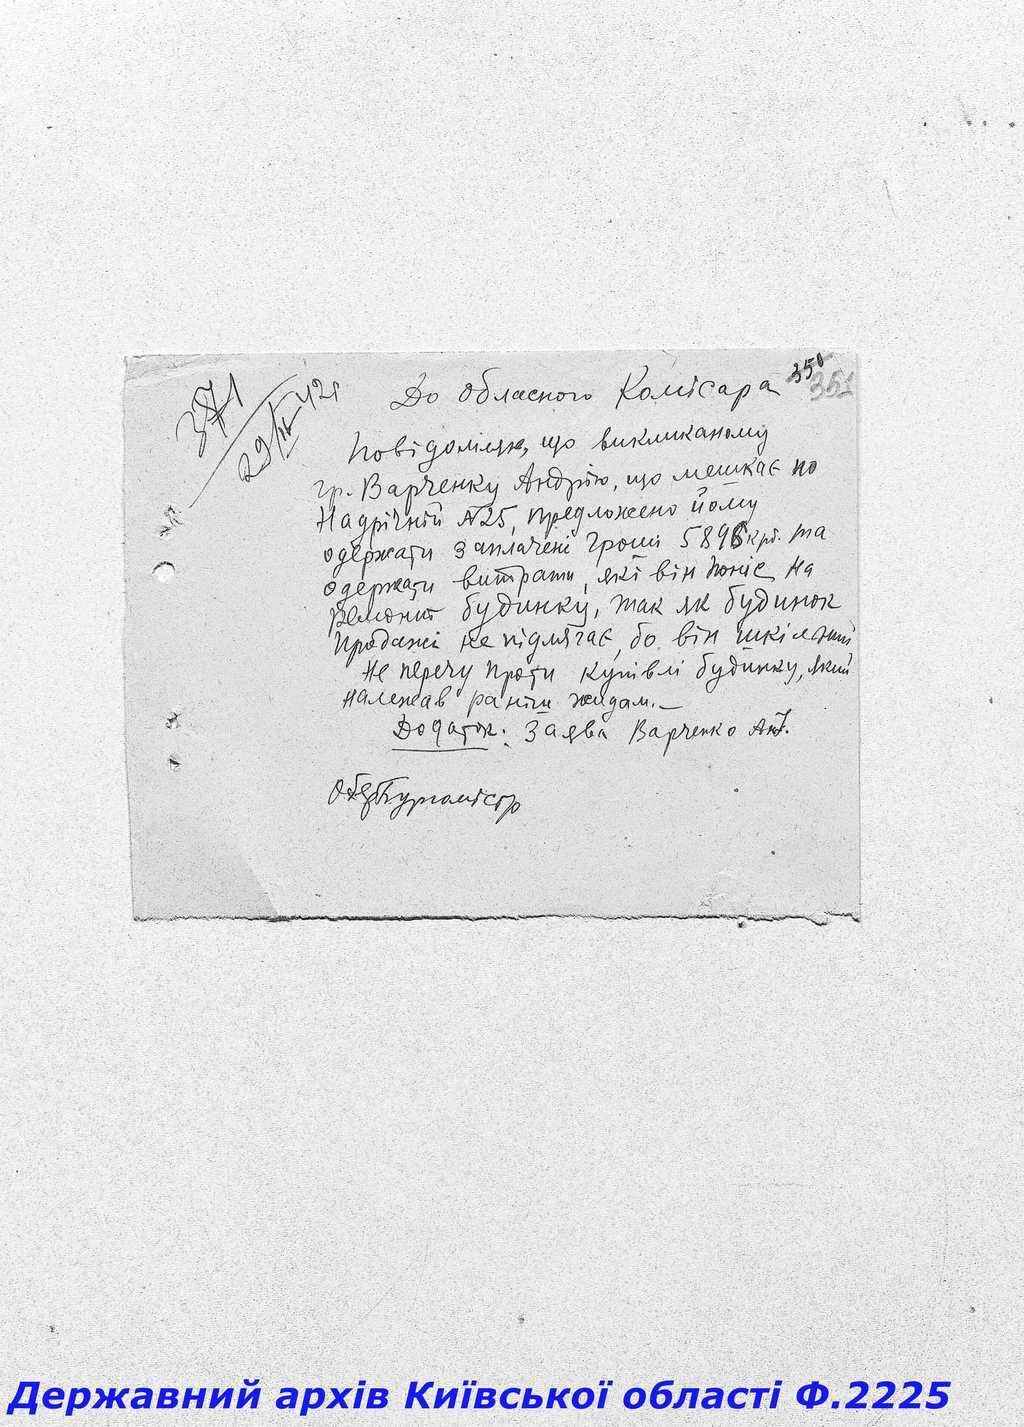 350
351
371
29/IV-42г
До Обласного Комісара
Повідомляю, що викликаному
гр. Варченку Андрію, що мешкає по
Надрічній №25, предложено йому
одержати заплачені гроші 5896 крб. та
одержати витрати, які він поніс на
ремонт будинку, так як будинок
продажі не підлягає, бо він шкільний
Не перечу проти купівлі будинку, який
належав раніш жидам.—
Додаток: Заява Варченко Ан.
Бургомістр
Державний архів Київської області Ф.2225